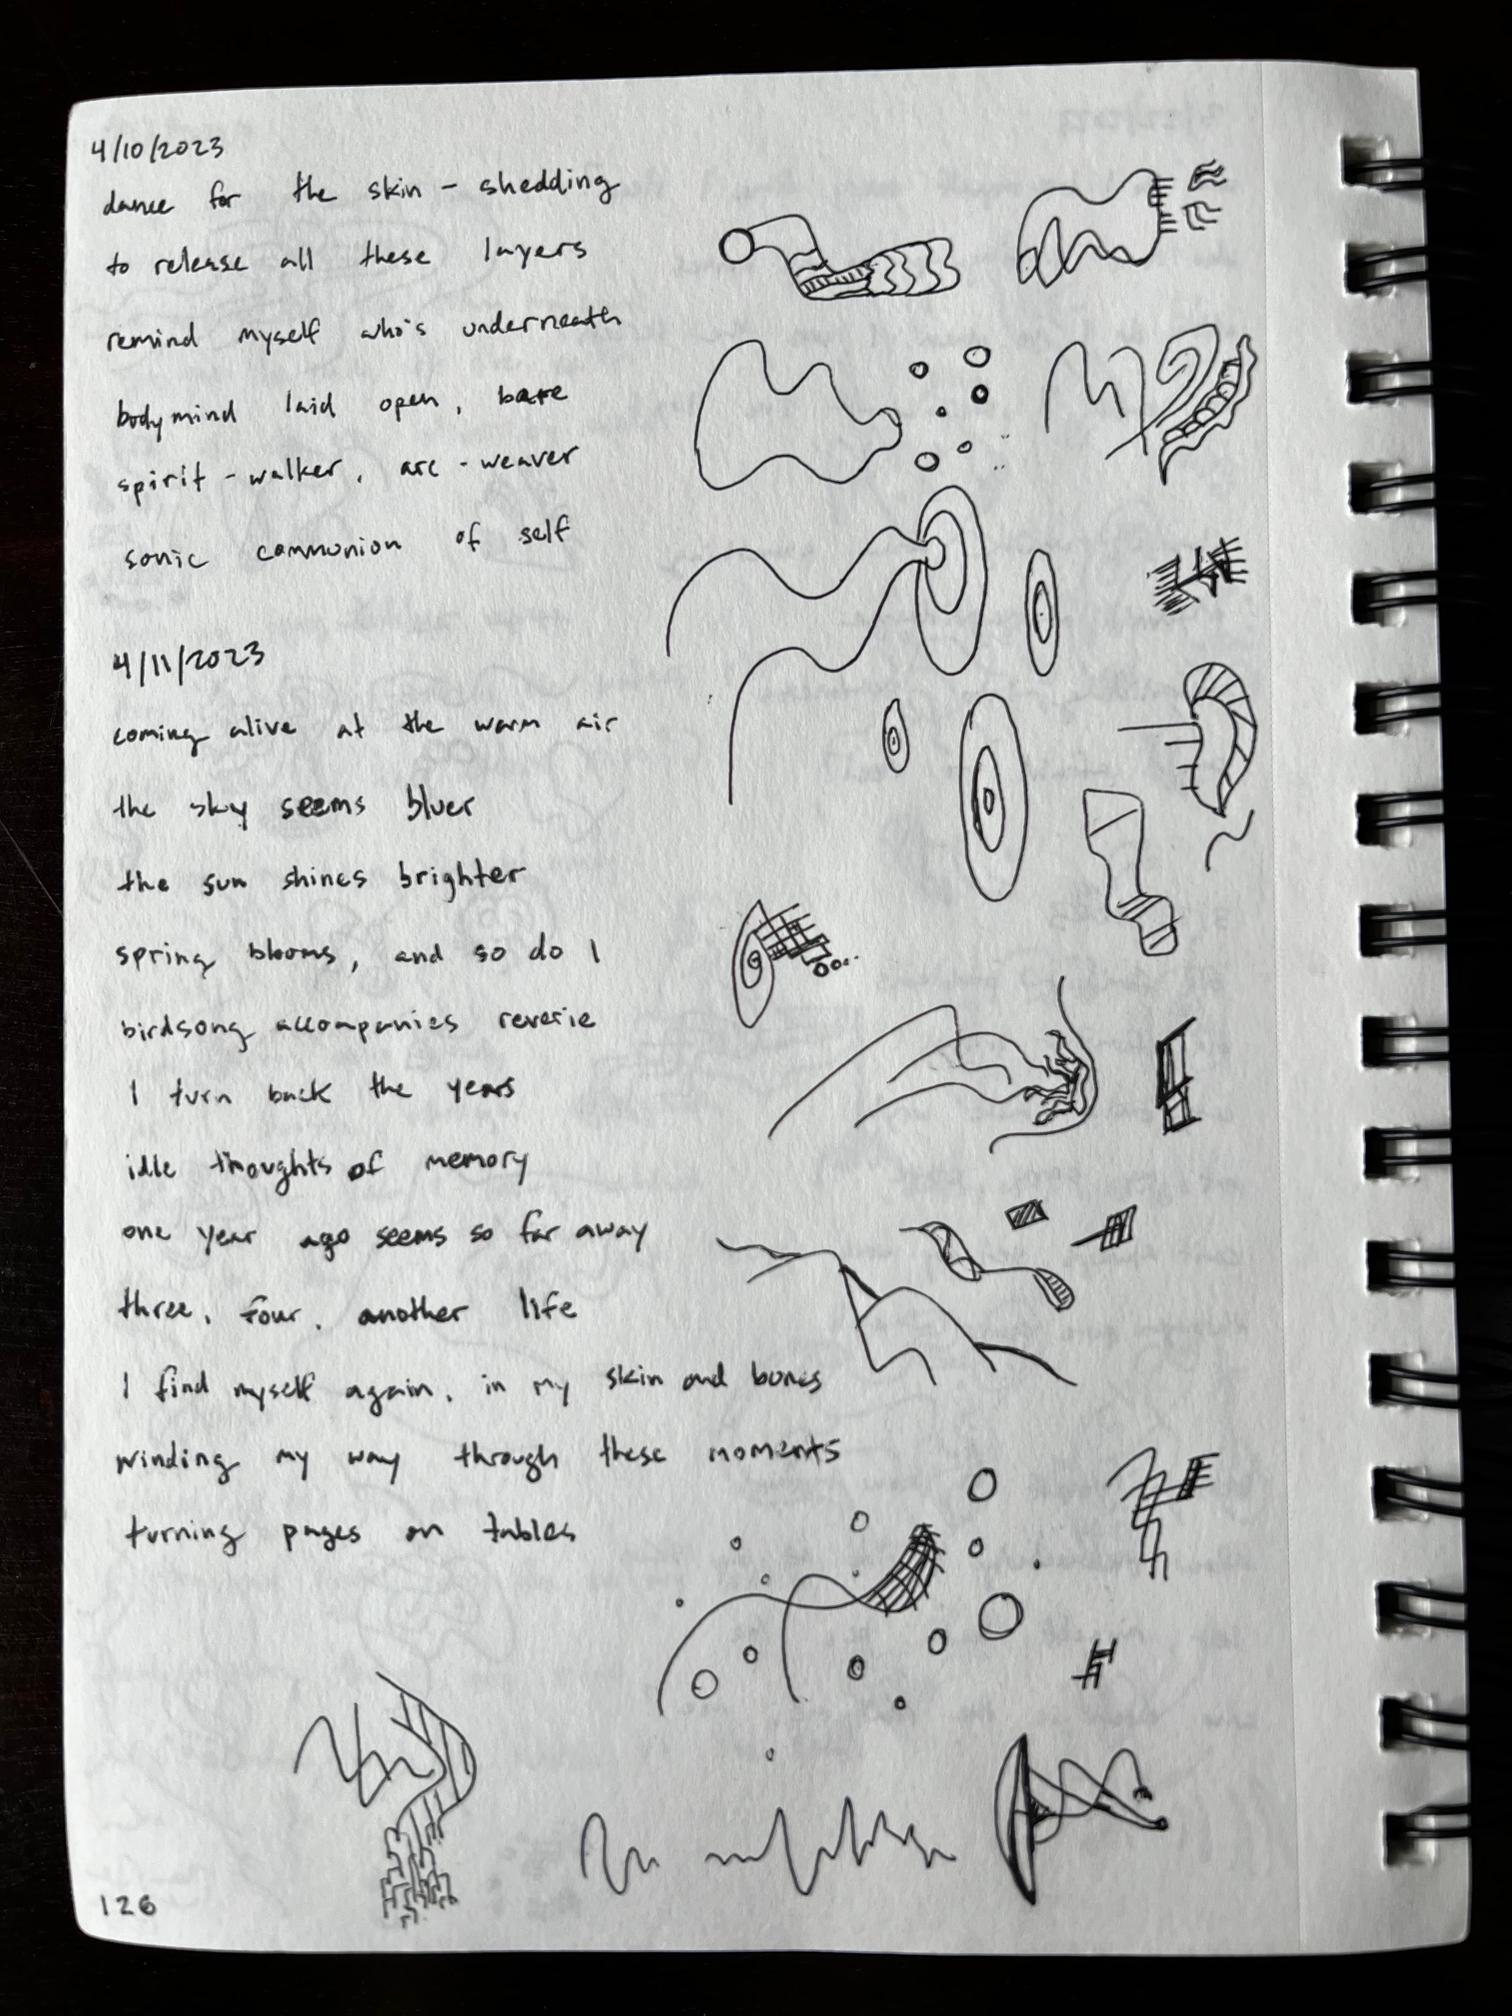 4/10/2023
dance for the skin-shedding
to release all these layers
remind myself who's underneath
bodymind laid open, bare
spirit-walker, arc-weaver
sonic communion of self
4/11/2023
coming alive at the warm air
the sky seems bluer
the sun shines brighter
spring blooms, and so do I
birdsong accompanies reverie
I turn back the years
idle thoughts of memory
one year ago seems so far away
three, four, another life
I find myself again, in my skin and bones
winding my way through these moments
turning pages on tables
126